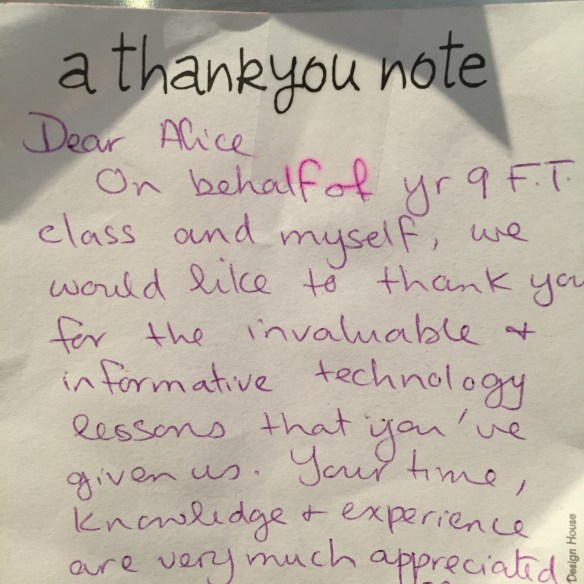 a thankyou note
Dear Alice
On behalf of yr 9 F.T.
class and myself, we
would like to thank you
for the invaluable +
informative technology
lessons that you've
given us. Your time,
knowledge + experience
are very much appreciated
Design House